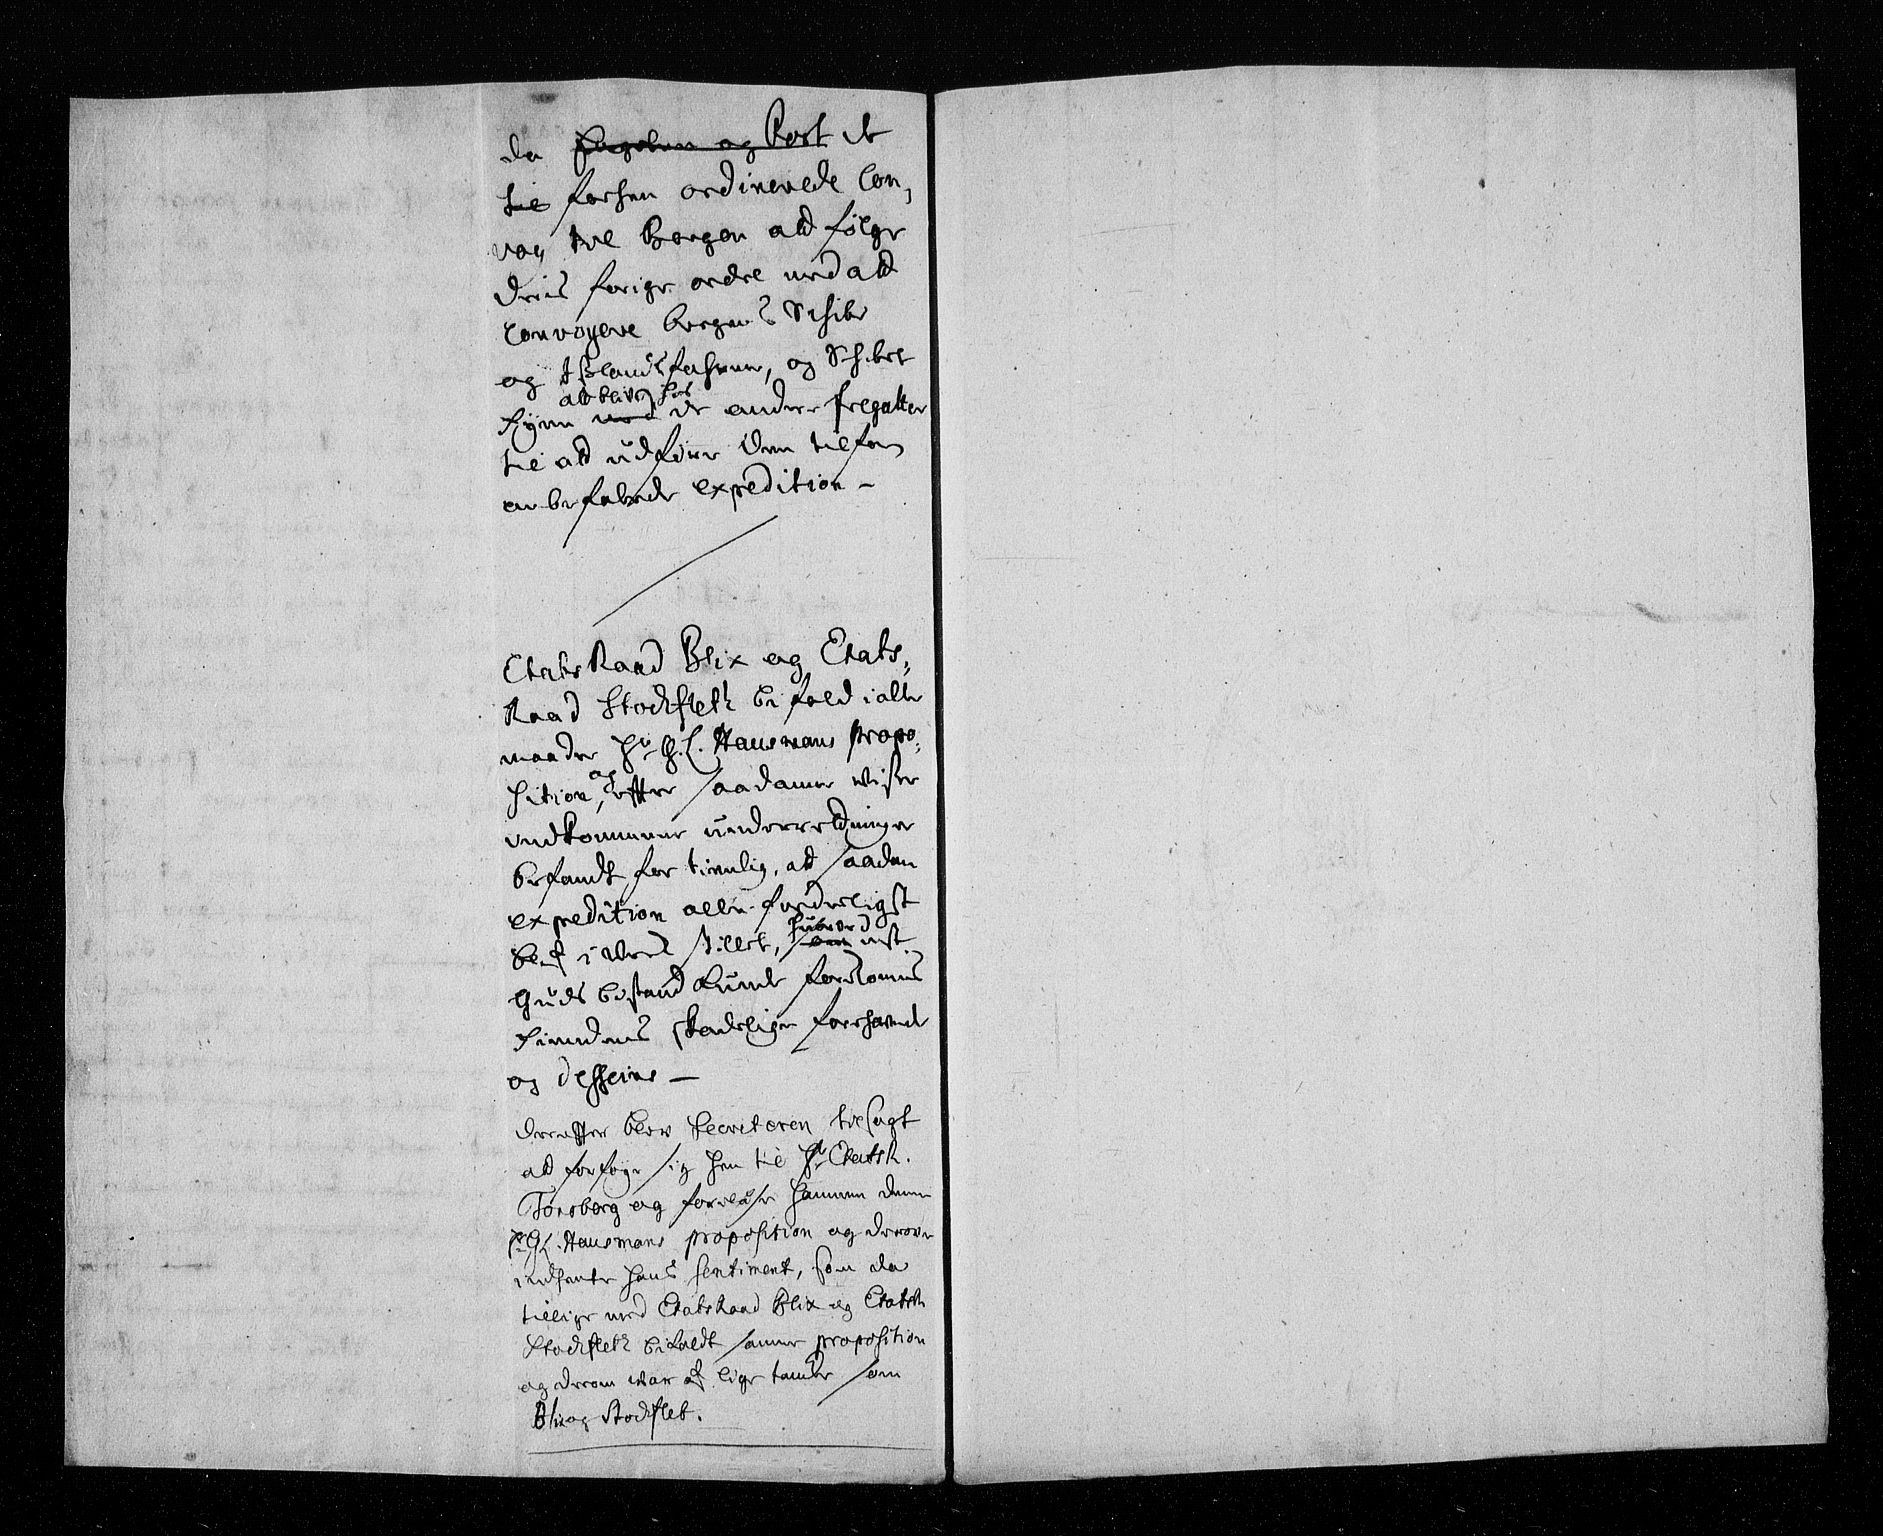 da flegelen og Post it
til forhen ordinerede Con,
voy til Bergen ald følge
deris forige ordre med ald
convoyere bergens Schibe
og Ißlandsfahrere, og Schibet
ald blive hos
Fyen med de andre fregatter
til ald udføre den tilforn
anbefalede expedition —
Etats Raad Blix og Etats,
Raad Stockfleth bifald i alle
maader Hr. G. L. Hausmans propo,
sition, og effter saadanne wisse
indkommene underretninger
befandt for tienlig, at saadan
expedition aller forderligst
blef i Verck stillet, hvorved nest
Guds bistand kunde forekomis
Fiendens skadelige forhafvende
og desseins —
dereffter blev Secreteren tilsagt
ald forføye sig hen til Hr Etatsr.
Tonsberg og forelæse hannem denne
Hr. G. L. Hausmans proposition og derover
indhente hans sentiment, som da
tillige med Etats Raad Blix og Etatsr
Stockfleth bifaldt samme proposition
og derom war af lige tancke som
Blix og Stockflet.